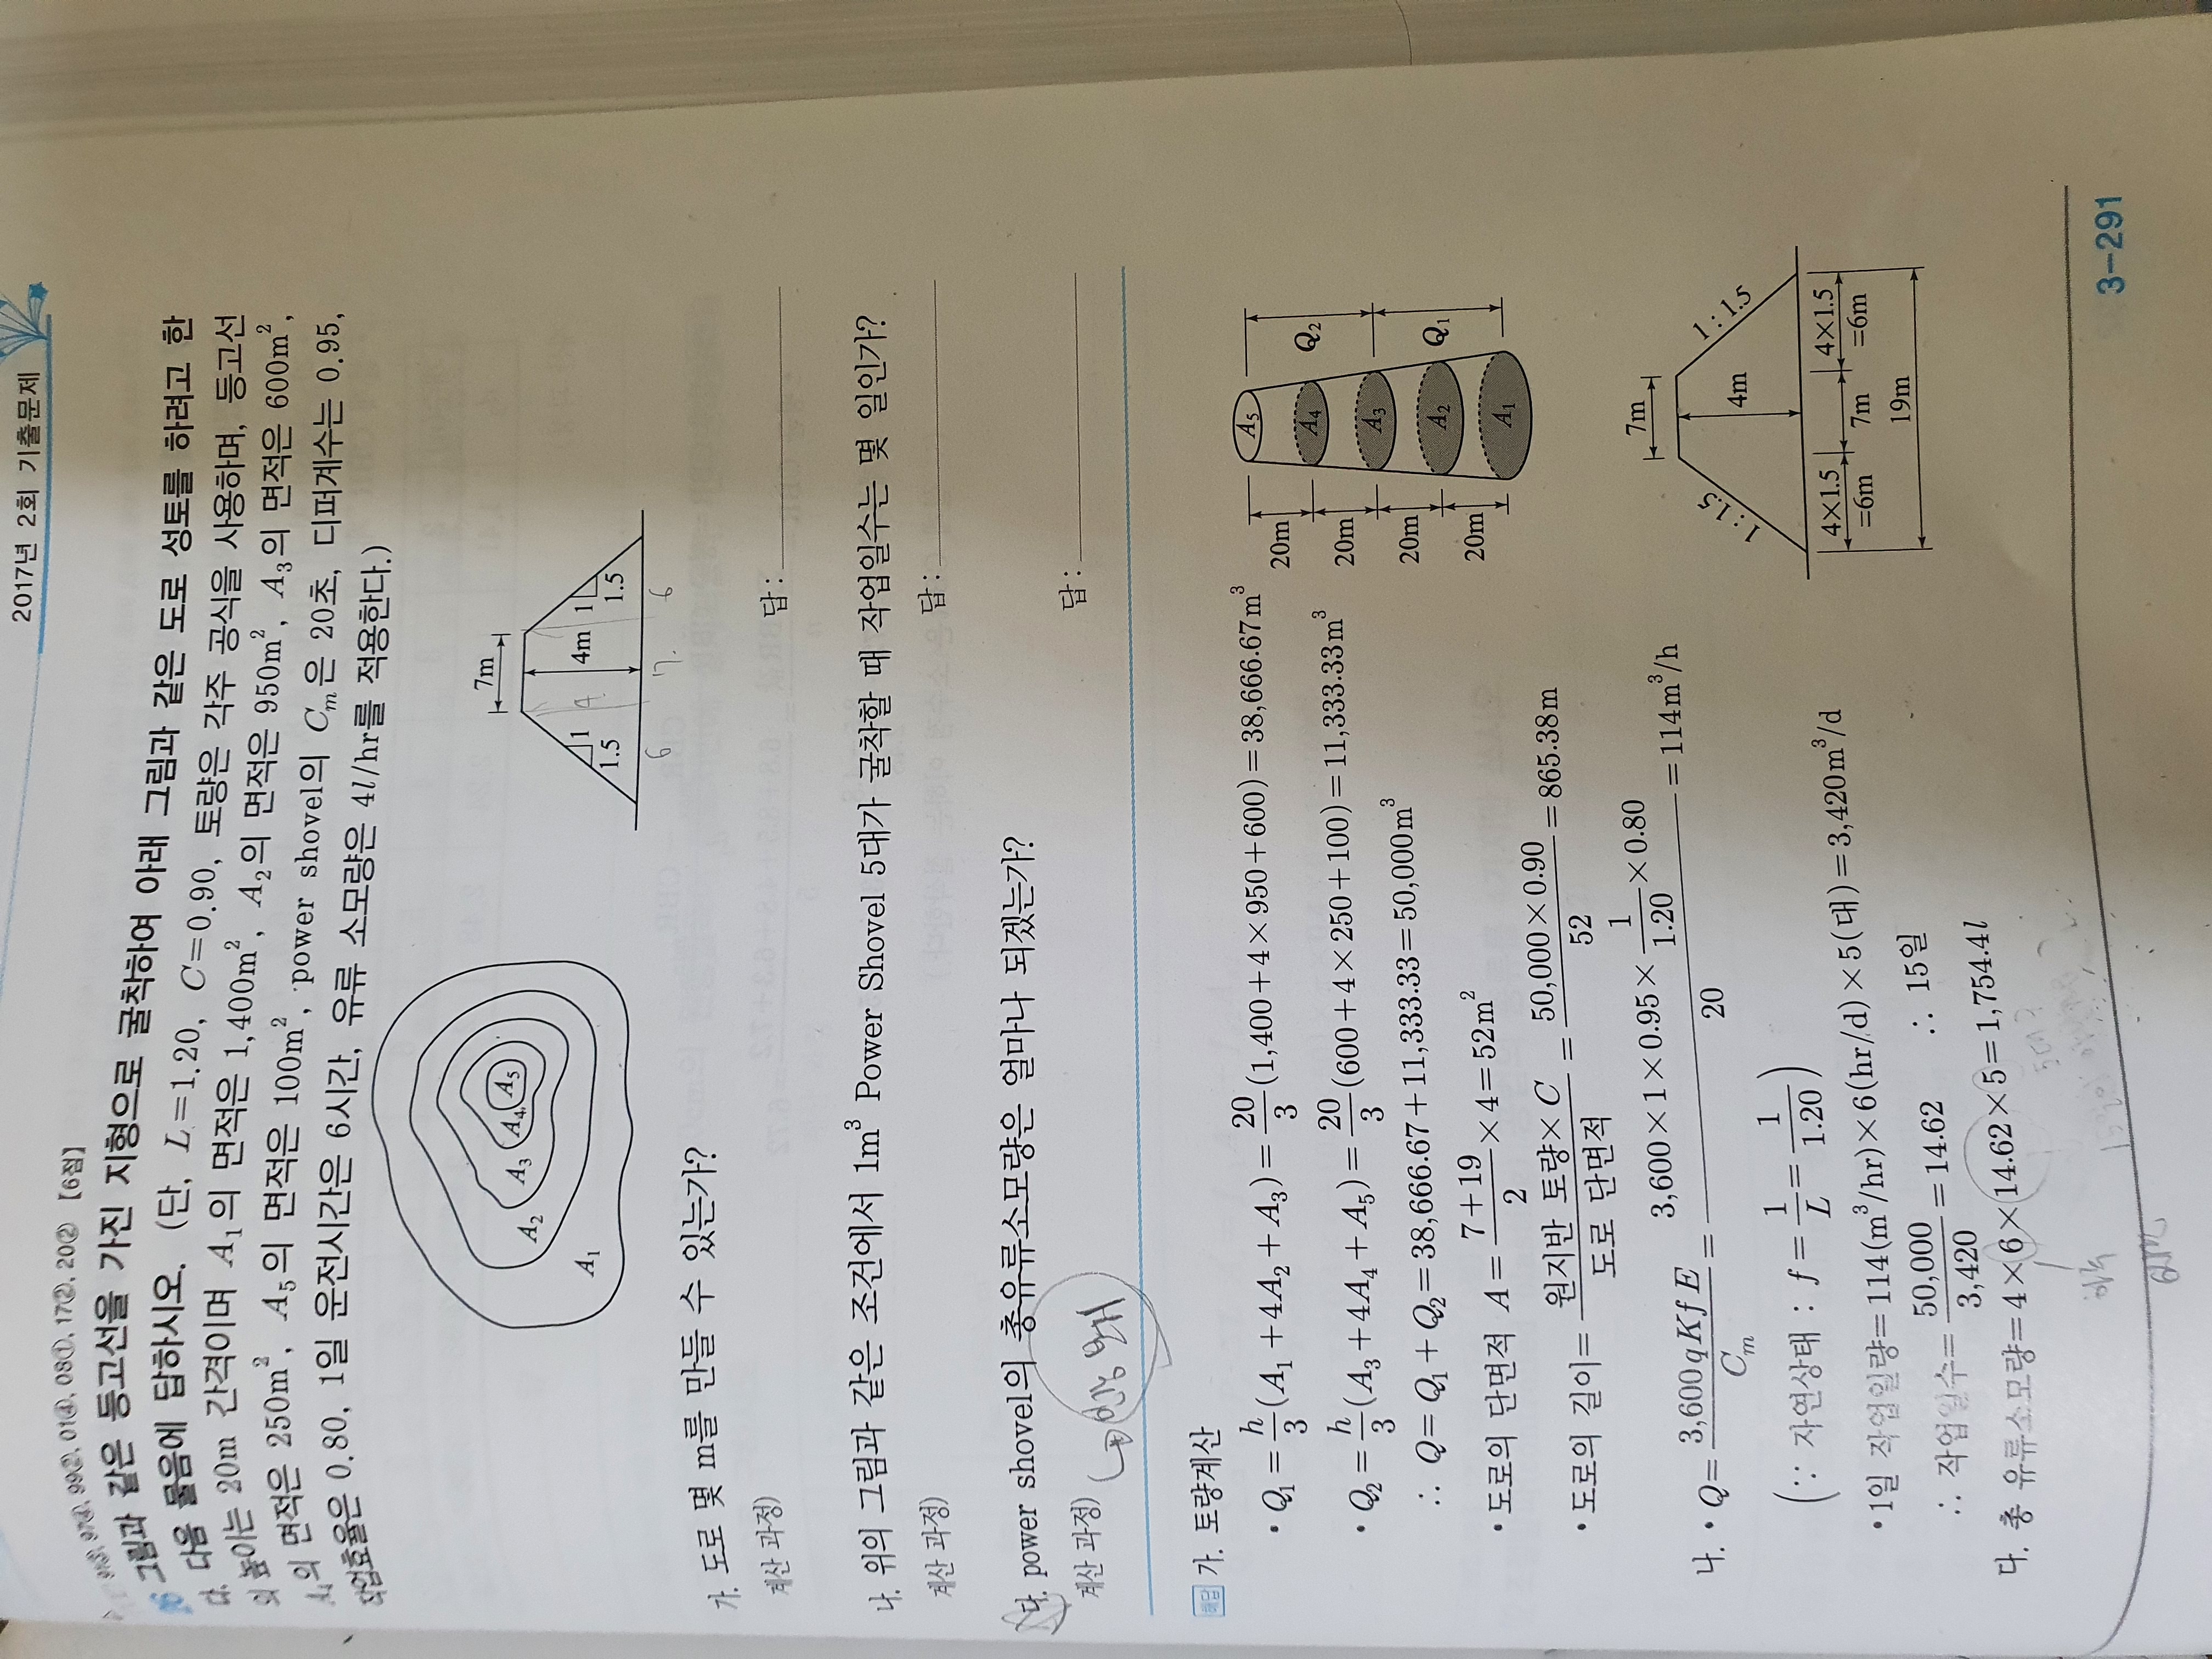 2017년 2회 기출문제
99②, 01④, 08①, 17②, 20② 【6점】
그림과 같은 등고선을 가진 지형으로 굴착하여 아래 그림과 같은 도로 성토를 하려고 한
다. 다음 물음에 답하시오. (단, L=1.20, C=0.90, 토량은 각주 공식을 사용하며, 등고선
의 높이는 20m 간격이며 A₁의 면적은 1,400m², A₂의 면적은 950m², A₃의 면적은 600m²,
A₄의 면적은 250m², A₅의 면적은 100m², power shovel의 Cₘ은 20초, 디퍼계수는 0.95,
작업효율은 0.80, 1일 운전시간은 6시간, 유류 소모량은 4l/hr를 적용한다.)
A₁ A₂ A₃ A₄ A₅
7m
4m
1 1.5
1 1.5
4
6 7. 6
가. 도로 몇 m를 만들 수 있는가?
계산 과정) 답 :
나. 위의 그림과 같은 조건에서 1m³ Power Shovel 5대가 굴착할 때 작업일수는 몇 일인가?
계산 과정) 답 :
다. power shovel의 총유류소모량은 얼마나 되겠는가?
계산 과정) 답 :
해답 가. 토량계산
• Q₁ = h/3 (A₁ + 4A₂ + A₃) = 20/3 (1,400 + 4×950 + 600) = 38,666.67m³
• Q₂ = h/3 (A₃ + 4A₄ + A₅) = 20/3 (600 + 4×250 + 100) = 11,333.33m³
∴ Q = Q₁ + Q₂ = 38,666.67 + 11,333.33 = 50,000m³
• 도로의 단면적 A = (7+19)/2 ×4 = 52m²
• 도로의 길이 = 원지반 토량×C / 도로 단면적 = 50,000×0.90 / 52 = 865.38m
A₅ A₄ A₃ A₂ A₁
20m 20m 20m 20m
Q₂ Q₁
나. • Q = 3,600qKfE / Cₘ = 3,600×1×0.95×1/1.20×0.80 / 20 = 114m³/h
(∵ 자연상태 : f = 1/L = 1/1.20)
• 1일 작업일량 = 114(m³/hr)×6(hr/d)×5(대) = 3,420m³/d
∴ 작업일수 = 50,000/3,420 = 14.62 ∴ 15일
7m
4m
1 : 1.5
1 : 1.5
4×1.5 =6m
7m
4×1.5 =6m
19m
다. 총 유류소모량 = 4×6×14.62×5 = 1,754.4l
5대?
3-291